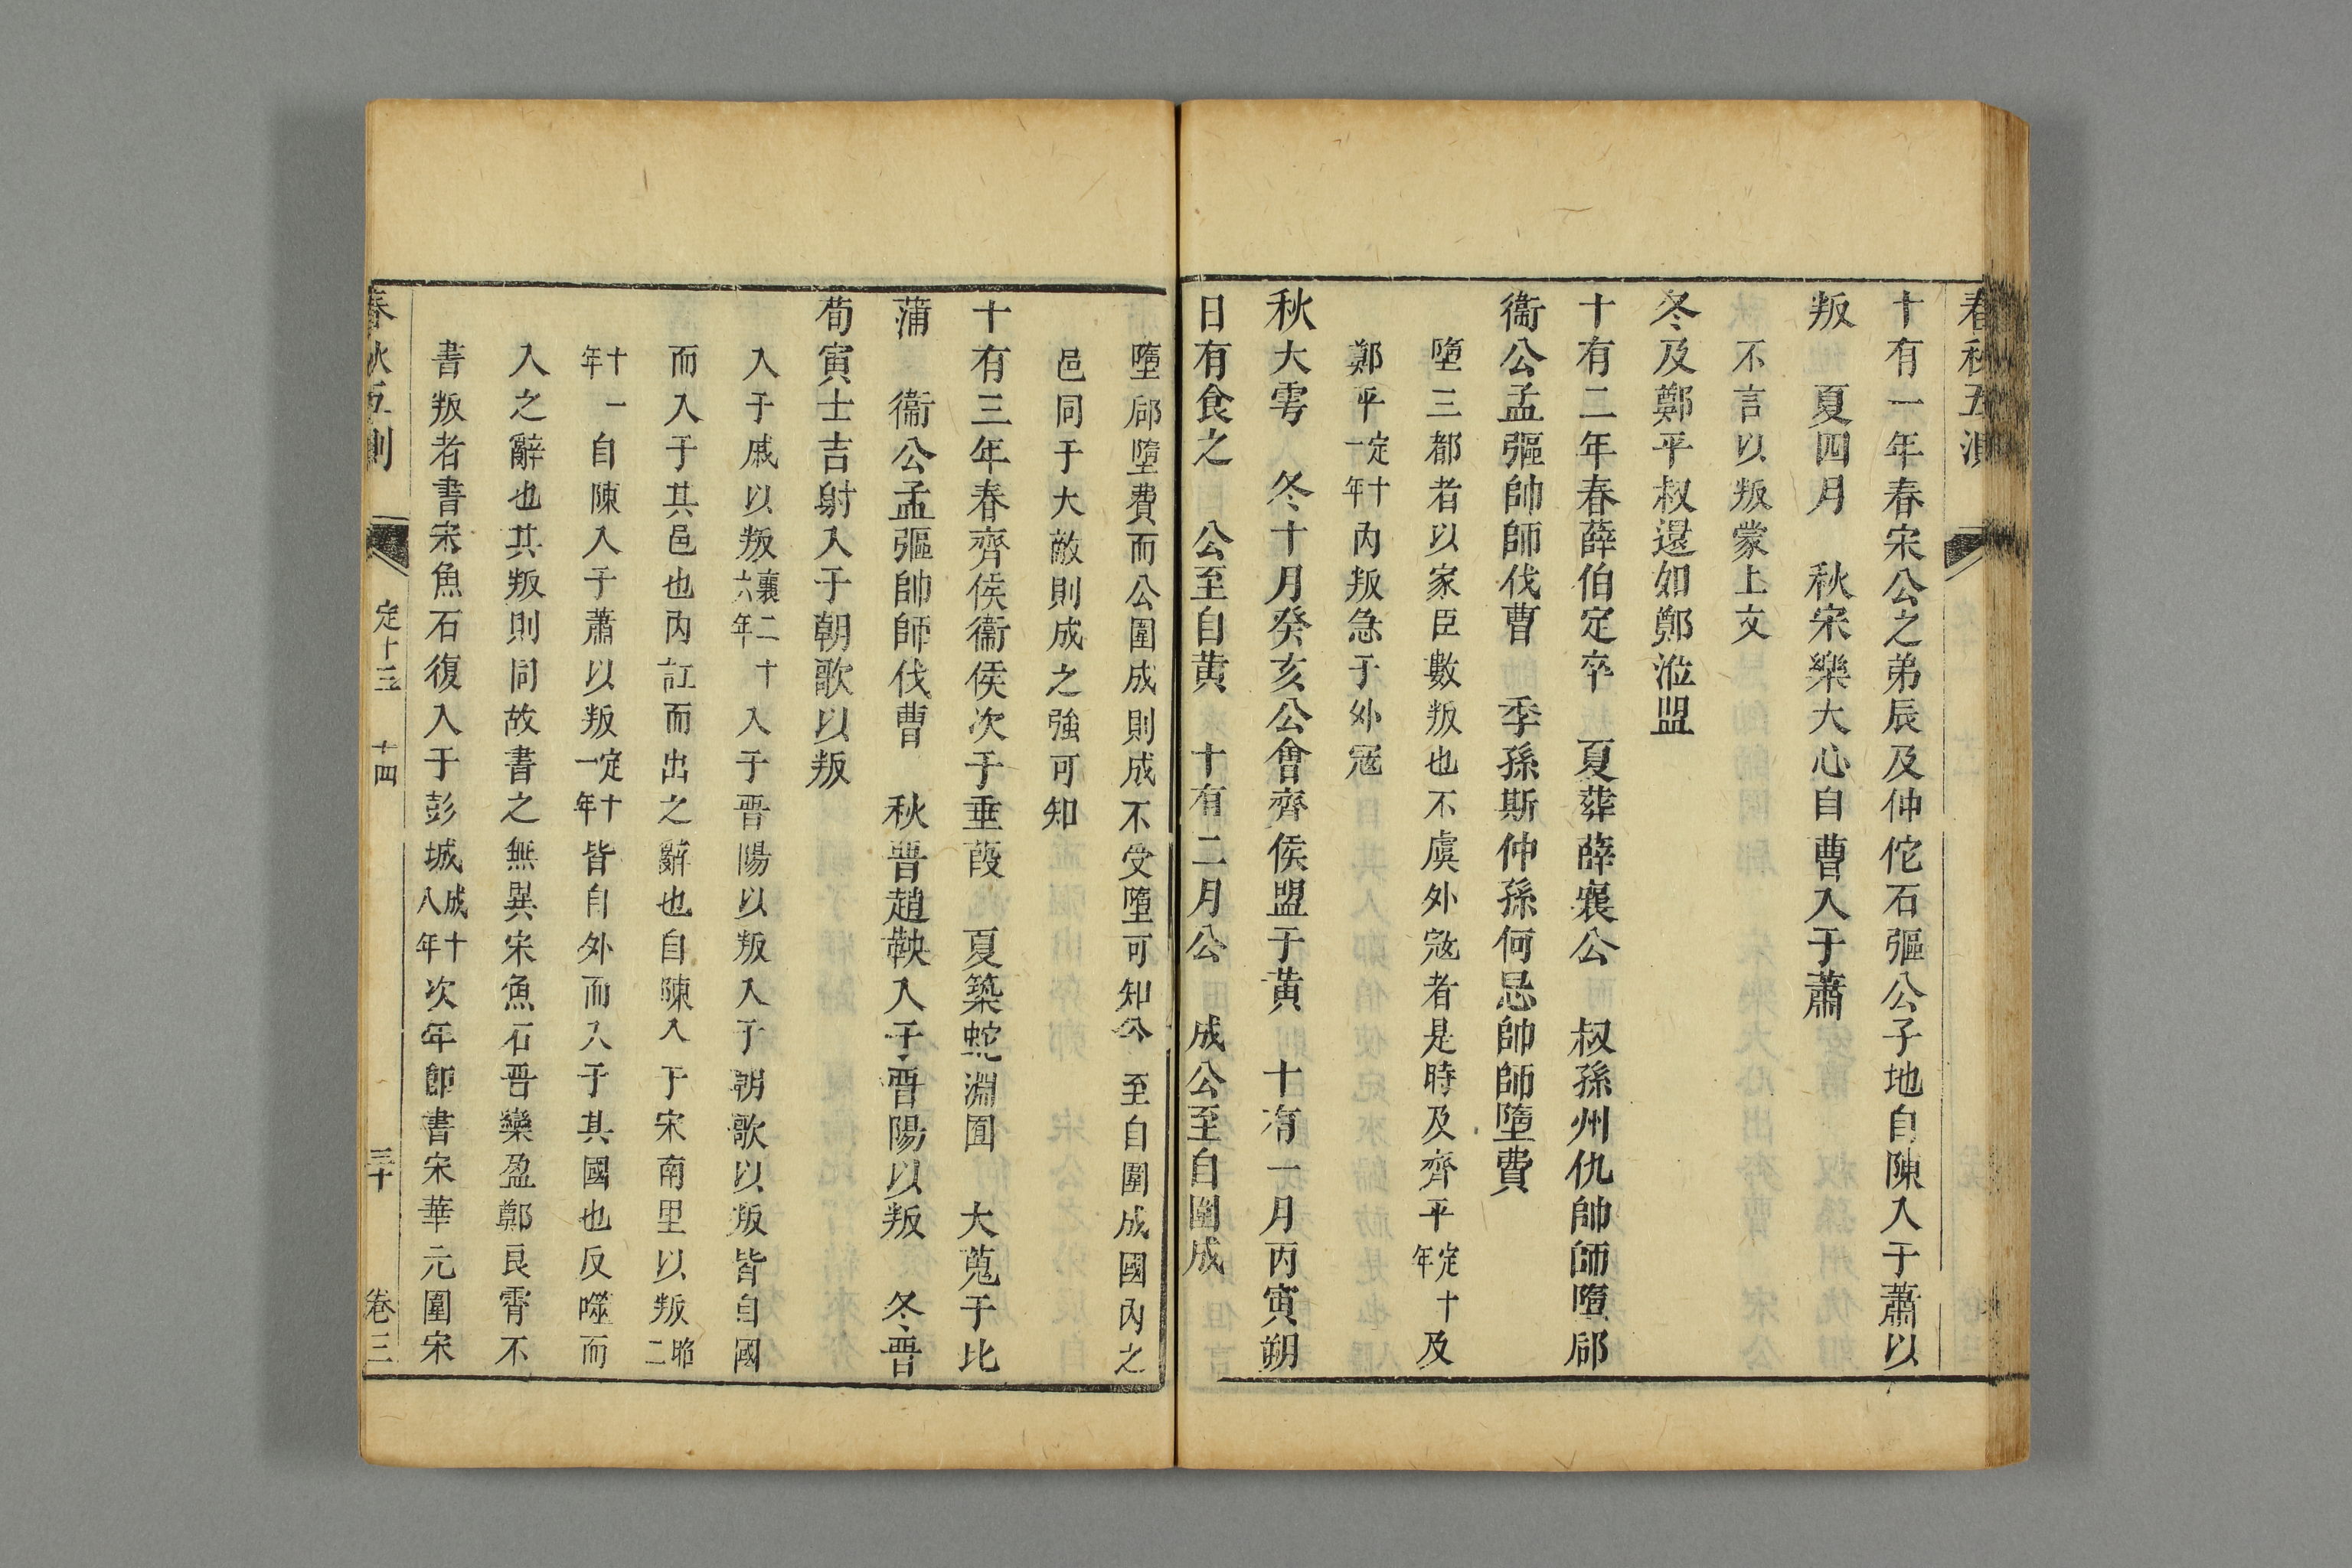 春秋五測
十有一年春宋公之弟辰及仲佗石彄公子地自陳入于蕭以
叛　夏四月　秋宋樂大心自曹入于蕭
不言以叛蒙上文
冬及鄭平叔還如鄭涖盟
十有二年春薛伯定卒　夏葬薛襄公　叔孫州仇帥師墮郈
衞公孟彄帥師伐曹　季孫斯仲孫何忌帥師墮費
墮三都者以家臣數叛也不虞外宼者是時及齊平定十年及
鄭平定十一年內叛急于外宼
秋大雩　冬十月癸亥公會齊侯盟于黃　十有一月丙寅朔
日有食之　公至自黃　十有二月公　成公至自圍成
墮郈墮費而公圍成則成不受墮可知公　至自圍成國內之
邑同于大敵則成之強可知
十有三年春齊侯衞侯次于垂葭　夏築蛇淵囿　大蒐于比
蒲　衞公孟彄帥師伐曹　秋晉趙鞅入于晉陽以叛　冬晉
荀寅士吉射入于朝歌以叛
入于戚以叛襄二十六年入于晉陽以叛入于朝歌以叛皆自國
而入于其邑也內訌而出之辭也自陳入于宋南里以叛昭二
十一年自陳入于蕭以叛定十一年皆自外而入于其國也反噬而
入之辭也其叛則同故書之無異宋魚石晉欒盈鄭良霄不
書叛者書宋魚石復入于彭城成十八年次年卽書宋華元圍宋
春秋五測　定十三　十四　三十　卷三